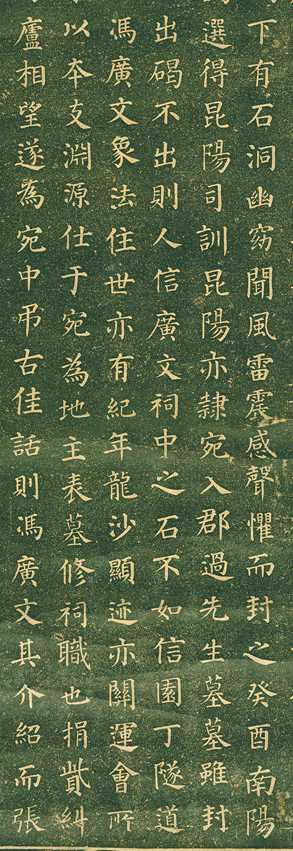 下有石洞幽窈聞風雷震感聲懼而封之癸酉南陽
選得昆陽司訓昆陽亦隷宛入郡過先生墓墓雖封
出碣不出則人信廣文祠中之石不如信園丁隧道
馮廣文象法住世亦有紀年龍沙顯迹亦關運會所
以本支淵源仕于宛為地主表墓修祠職也捐貲糾
廬相望遂為宛中弔古佳話則馮廣文其介紹而張